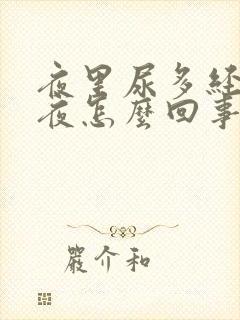 夜里尿多经
夜怎麼回事
嚴介和